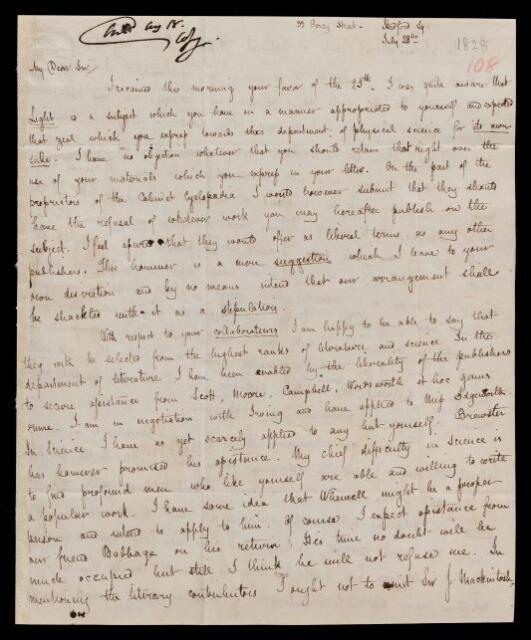 33 Percy Street - Bedford Sq.
July 28th 1828
108
My Dear Sir
I received this morning your favor of the 25th. I was quite aware that
Light is a subject which you have in a manner appropriated to yourself and expected
that zeal which you express towards this department of physical science for its own
sake. I have no objection whatever that you should retain that right over the
use of your materials which you express in your letter. On the part of the
proprietors of the Cabinet Cyclopædia I would however submit that they should
have the refusal of whatever work you may hereafter publish on the
subject. I feel assured that they would offer as liberal terms as any other
publishers. This however is a mere suggestion which I leave to your
own discretion and by no means intend that our arrangement shall
be shackled with it as a stipulation.
With respect to your collaborateurs I am happy to be able to say that
they will be selected from the highest ranks of literature and science. In the
department of literature I have been enabled by the liberality of the publishers
to secure assistance from Scott, Moore, Campbell, Wordsworth et hoc genus
omne. I am in negotiation with Irving and have applied to Miss Edgeworth.
In Science I have as yet scarcely applied to any but yourself. Brewster
has however promised his assistance. My chief difficulty in science is
to find profound men who like yourself are able and willing to write
a popular work. I have some idea that Whewell might be a proper
person and intend to apply to him. Of course I expect assistance from
our friend Babbage on his return. His time no doubt will be
much occupied but still I think he will not refuse me. In
mentioning the literary contributors I ought not to omit Sir J Mackintosh,